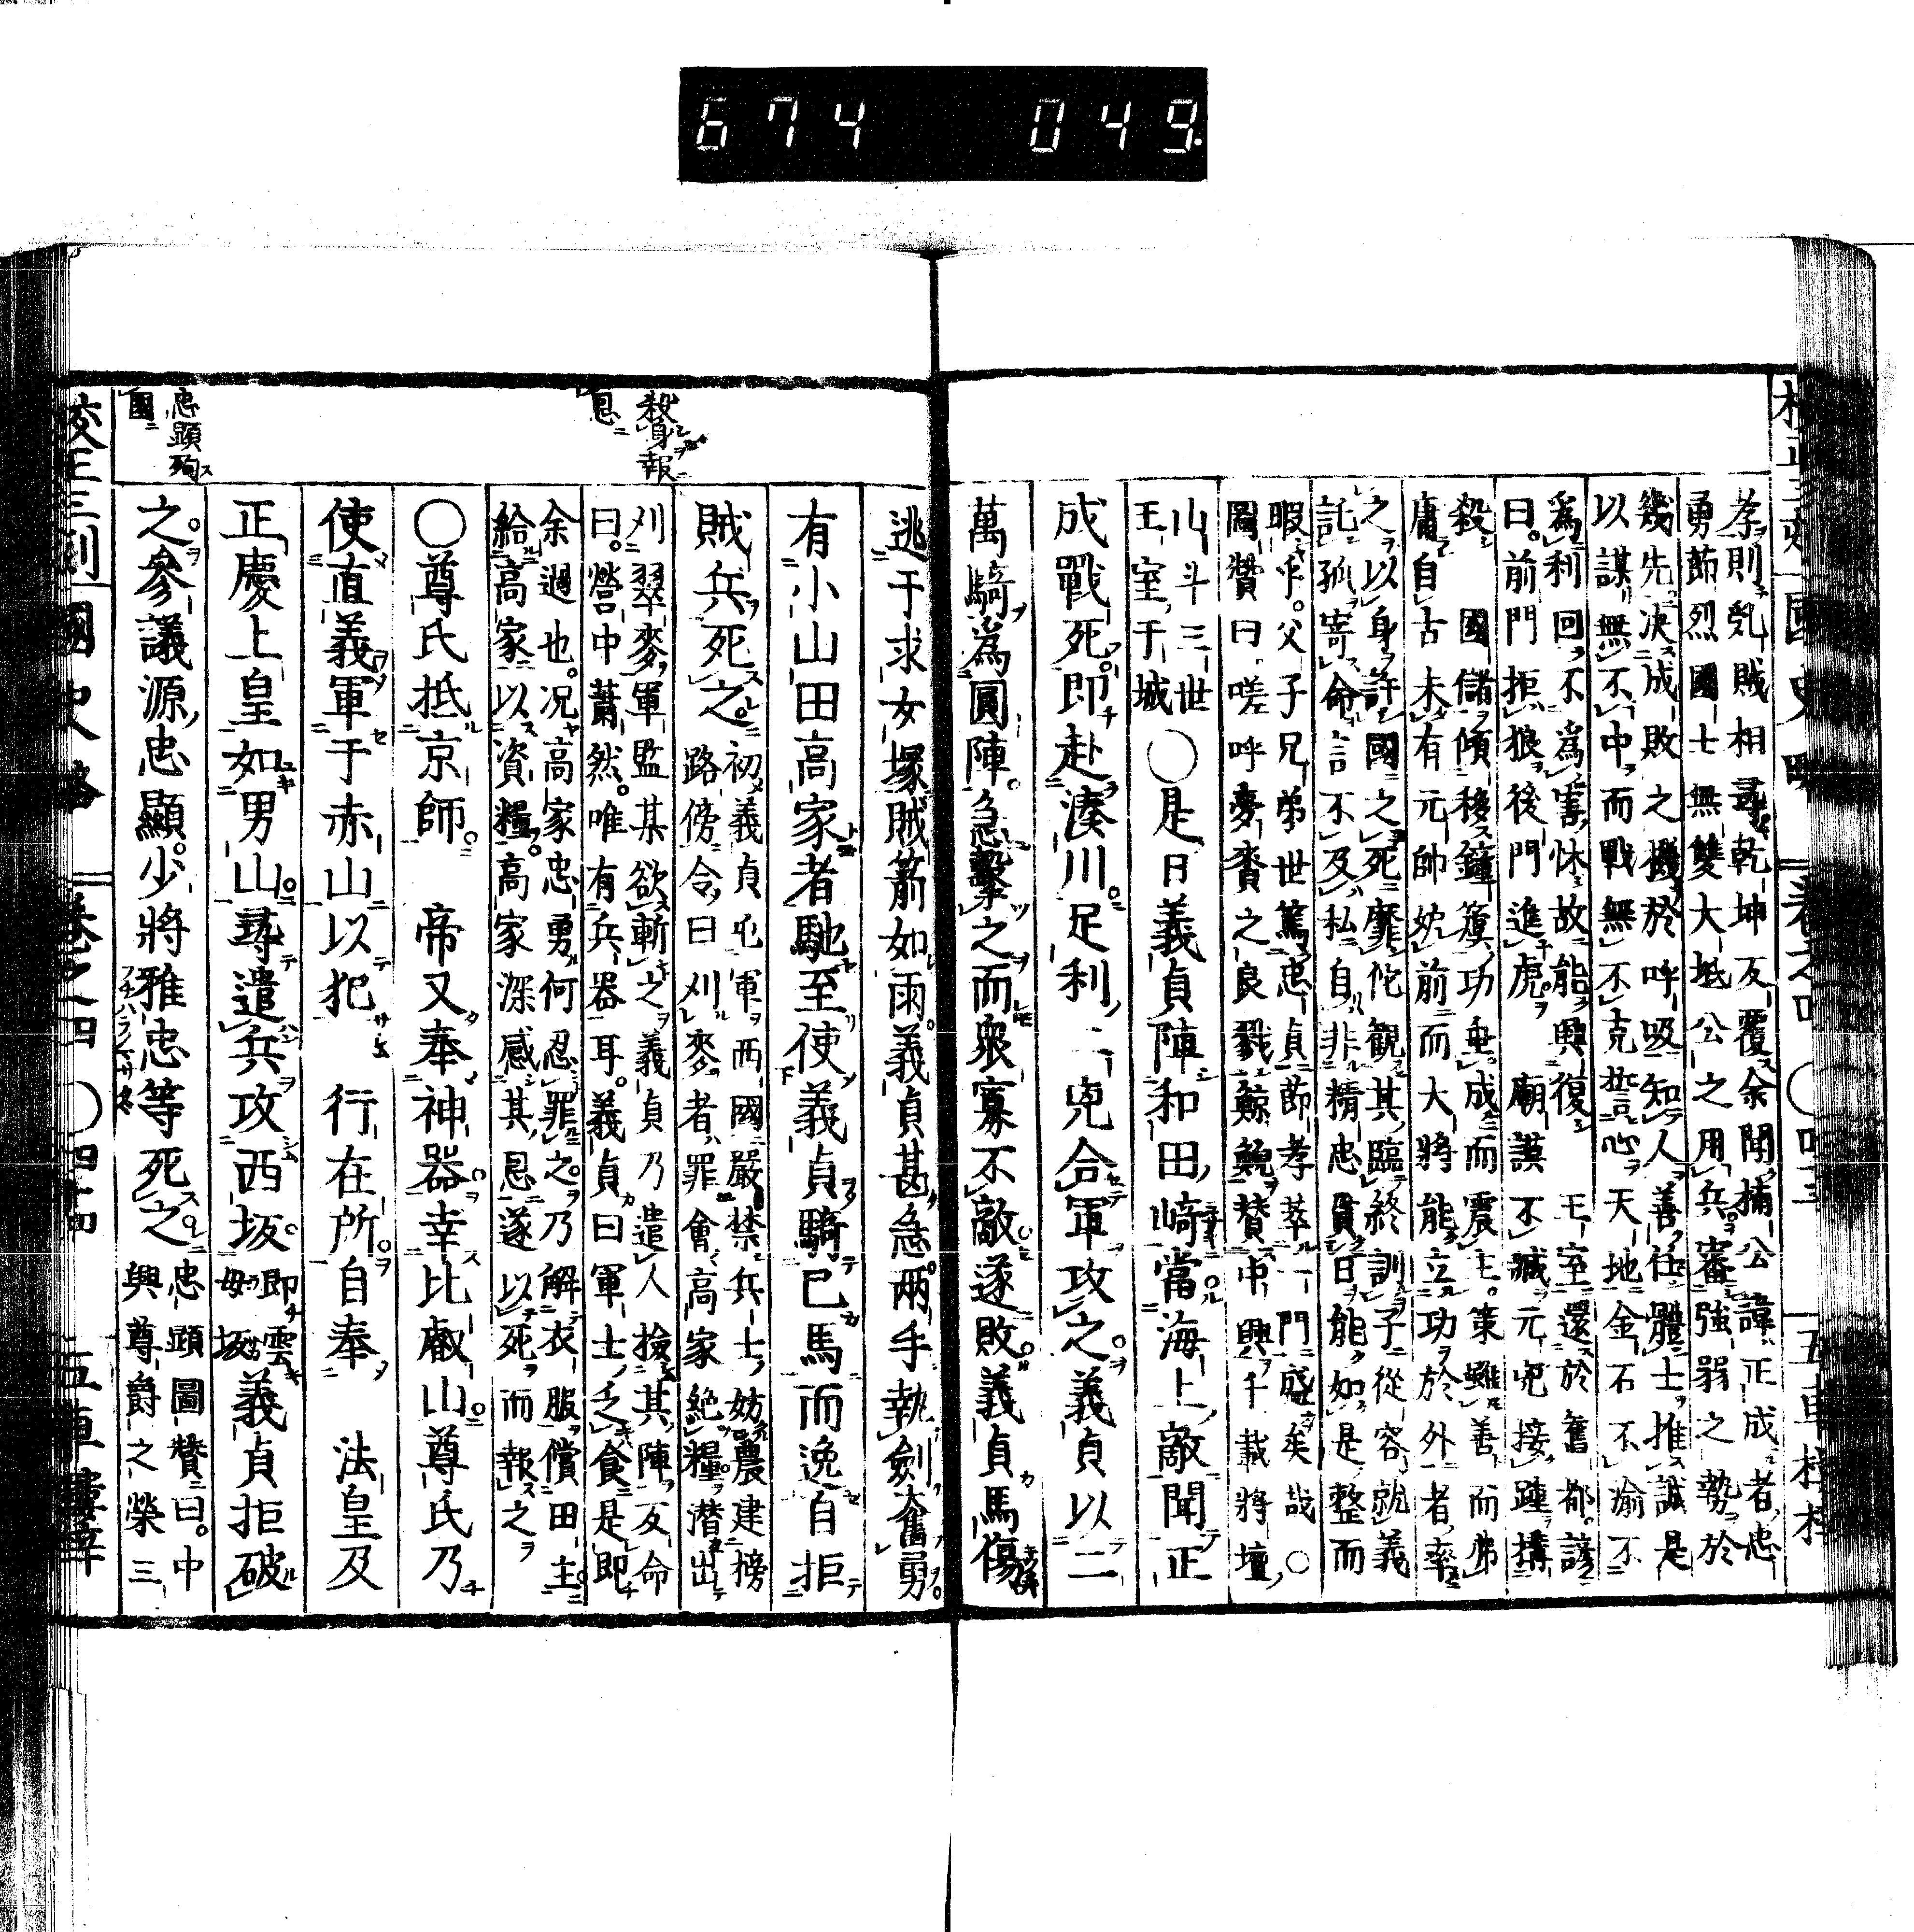 674 049.
孝則亂賊相尋乾坤反覆余聞楠公諱正成者忠
勇節烈國士無雙大抵公之用兵審強弱之勢於
幾先決成敗之機於呼吸知人善任體士推誠是
以謀無不中而戰無不克誓心天地金石不渝不
爲利回不爲害怵故能興復 王室還於舊都諺
曰前門拒狼後門進虎 廟謨不臧元兇接踵搆
殺 國儲傾移鐘簴功垂成而震主策雖善而弗
庸自古未有元帥妒前而大將能立功於外者卒
之以身許國之死靡佗觀其臨終訓子從容就義
託孤寄命言不及私自非精忠貫日能如是整而
暇乎父子兄弟世篤忠貞節孝萃一門盛矣哉○
圖贊曰嗟呼夢賚之良戮鯨鯢贊中興千載將壇
山斗三世
王室于城
○是日義貞陣和田﨑當海上敵聞正
成戰死即赴湊川足利二兇合軍攻之義貞以二
萬騎為圓陣急擊之而衆寡不敵遂敗義貞馬傷
逃于求女塚賊箭如雨義貞甚急兩手執劍奮勇
有小山田高家者馳至使義貞騎已馬而逸自拒
賊兵死之
初義貞屯軍西國嚴禁兵士妨農建榜
路傍令曰刈麥者罪會高家絶糧潜出
殺身報
恩
刈翠麥軍監某欲斬之義貞乃遣人撿其陣反命
曰營中蕭然唯有兵器耳義貞曰軍士乏食是即
余過也况高家忠勇何忍罪之乃解衣服償田主
給高家以資糧高家深感其恩遂以死而報之
○尊氏抵京師 帝又奉神器幸比叡山尊氏乃
使直義軍于赤山以犯 行在所自奉 法皇及
正慶上皇如男山尋遣兵攻西坂
即雲
母坂
義貞拒破
之參議源忠顯少將雅忠等死之
忠顯圖贊曰中
興尊爵之榮三
忠顯殉
國
國史略
卷之四 ○四十四
五車樓梓